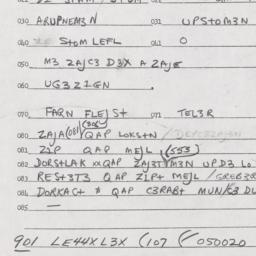 030 ARUPNEM3N 031 UPStOM3N
040 StOM LEFL 041 O
050 M3 ZAJC3 D3X A ZAJE
060 UG3Z1GN .
070 FARN FLEJSt 071 TEL3R
080 ZAJA(081) QAP LOKStN /
081 Z1P QAP MEJL (553)
082 DORStLAK QAP ZAJ3TYM3N UPD3 LO
083 RESt3T3 QAP Z1Pt MEJL / GREB3R
084 DORKACt & QAP C3RABt MUNK3 DU
085 —
901 LE44XL3X (107 (050020